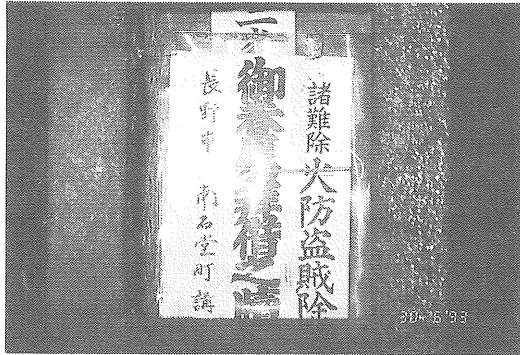 諸難除火防盗賊除
御眷属拝借之牘
長野市 南石堂町講
30 '6 '93